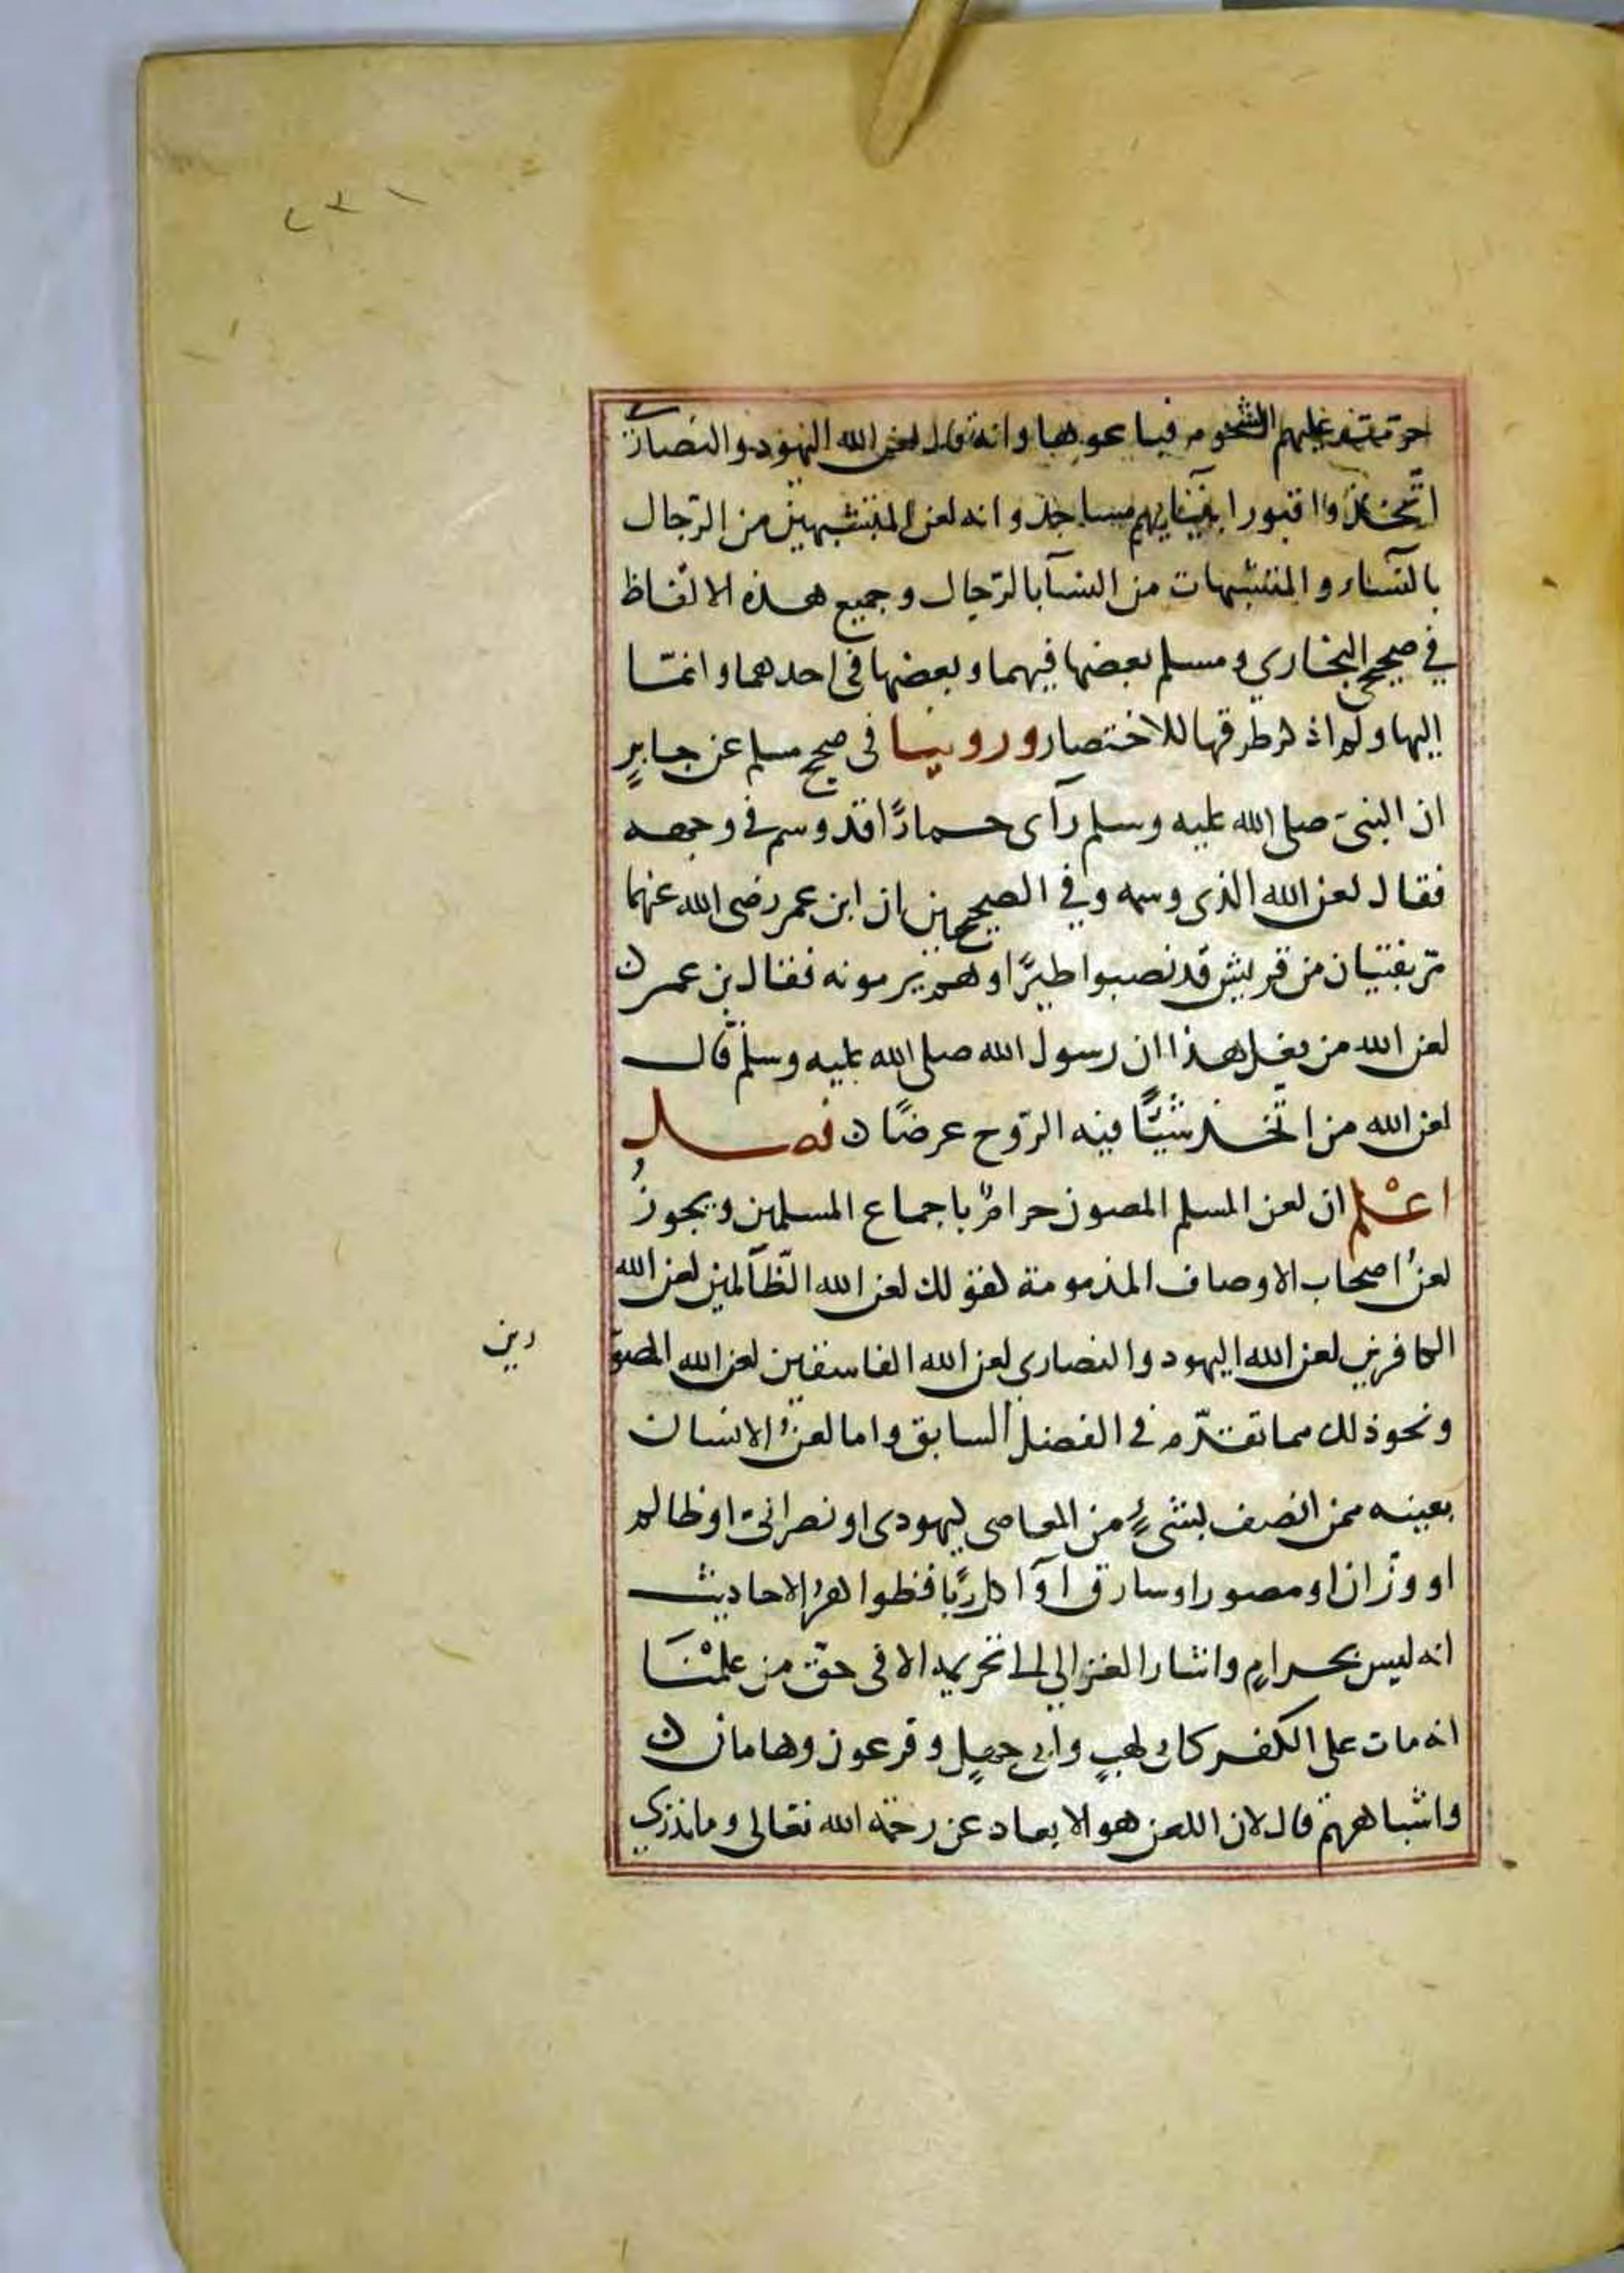 ٢٣١
حرمت عليهم الشحوم فباعوها وانه قال لعن الله اليهود والنصارى
اتخذوا قبور انبيايهم مساجد وانه لعن المتشبهين من الرّجال
بالنسآء والمتشبهات من النسآ بالرّجال وجميع هذه الالفاظ
في صحيح البخاري ومسلم بعضها فيهما وبعضها في احدهما وانمّا
اليها ولم اذكر طرقها للاختصار وروينا في صحيح مسلم عن جابرٍ
ان النبىّ صلى الله عليه وسلم رآى حمارًا قد وسم في وجهه
فقال لعن الله الذى وسمه وفي الصحيحين ان ابن عمر رضى الله عنهما
مرّ بفتيان من قريش قد نصبوا طيرًا وهم يرمونه فقال بن عمر
لعن الله من يفعل هذا ان رسول الله صلى الله عليه وسلم قال
لعن الله من اتّخذ شيئًا فيه الرّوح عرضًا فصل
اعْلم ان لعن المسلم المصون حرامٌ باجماع المسلمين ويجوزُ
لعنُ اصحاب الاوصاف المذمومة كقولك لعن الله الظّالمين لعن الله
الكافرين لعن الله اليهود والنصارى لعن الله الفاسقين لعن الله المصوّ
رين
ونحو ذلك مما تقدّم في الفصل السابق واما لعنُ الانسان
بعينه ممن اتصف بشىءٍ من المعاصى كيهودى او نصرانىّ او ظالم
او وزّان او مصور او سارق او آكل ربًا فظواهرُ الاحاديث
انه ليس بحرامٍ واشار الغزالي الى تحريمه الا فى حقّ من علمْنَا
انه مات على الكفر كابى لهبٍ وابى جهلٍ وفرعون وهامان
واشباههم قال لان اللعن هو الابعاد عن رحمة الله تعالى وما ندرى